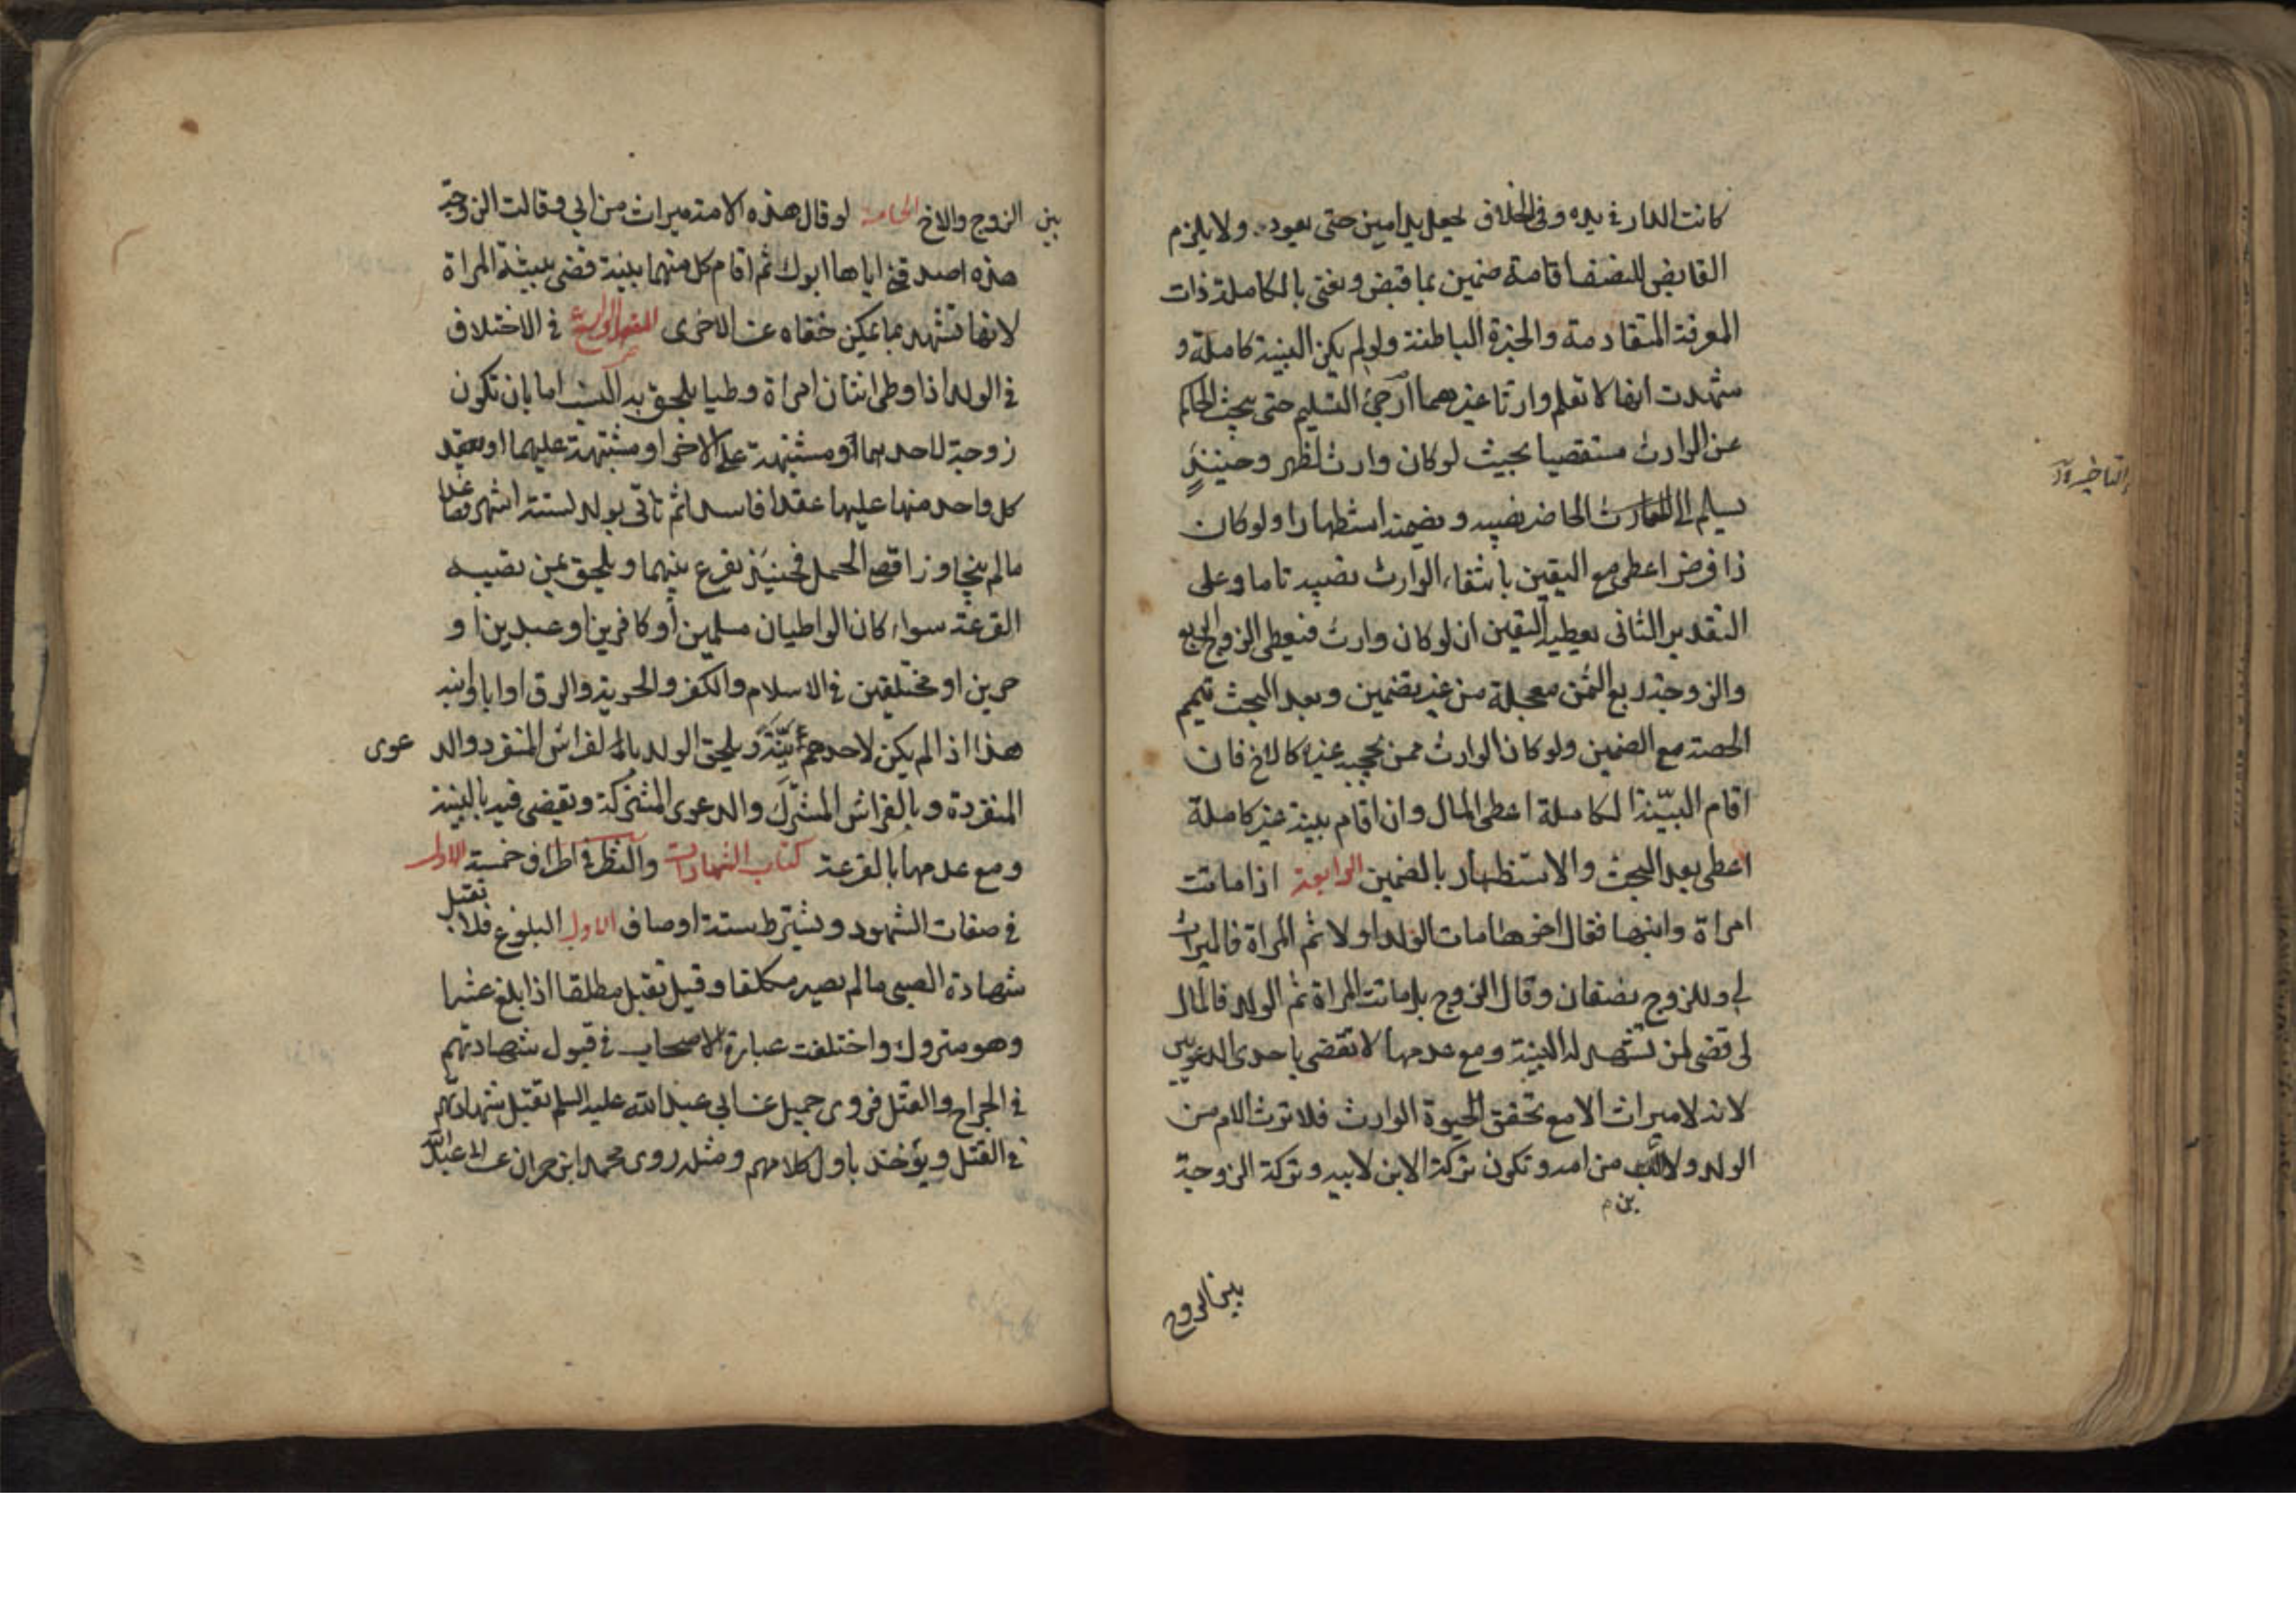 كانت الدار في يده وفي الخلاف يجعل بيد امين حتى يعود ولا يلزم
القابض للنصف اقامة ضمين بما قبض ونعني بالكاملة ذات
المعرفة المتقادمة والخبرة الباطنة ولو لم يكن البينة كاملة و
شهدت انها لا تعلم وارثا غيرهما ارجئ التسليم حتى يبحث الحاكم
عن الوارث مستقصيا بحيث لو كان وارث لظهر وحينئذ
يسلم الى الحاضر نصيبه ويضمنه استظهارا ولو كان
ذا فرض اعطي مع اليقين بانتفاء الوارث نصيبه تاما وعلى
التقدير الثاني يعطيه اليقين ان لو كان وارث فيعطى الزوج الربع
والزوجة ربع الثمن معجلة من غير تضمين وبعد البحث تتمم
الحصة مع الضمين ولو كان الوارث ممن يحجبه غيره كالاخ فان
اقام البيّنة الكاملة اعطي المال وان اقام بينة غير كاملة
اعطي بعد البحث والاستظهار بالضمين الرابعة اذا ماتت
امراة وابنها فقال اخوها مات الولد اولا ثم المراة فالميراث
لي وللزوج نصفان وقال الزوج بل ماتت المراة ثم الولد فالمال
لي قضي لمن تشهد له البينة ومع عدمها لا تقضي باحدى الدعويين
لانه لا ميراث الا مع تحقق الحيوة الوارث فلا ترث الام من
الولد ولا الابن من امه وتكون تركة الابن لابيه وتركة الزوجة
بن م
بين الزوج
بين الزوج والاخ الخامسة لو قال هذه الامة ميراث من ابي وقالت الزوجة
هذه اصدقني اياها ابوك ثم اقام كل منهما بينة قضي ببينة المراة
لانها تشهد بما يمكن خفاه عن الاخرى المقصد الرابع في الاختلاف
في الولد اذا وطي اثنان امراة وطيا يلحق به النسب اما بان تكون
زوجة لاحدهما او مشتبهة على الاخر او مشتبهة عليهما او يعقد
كل واحد منها عليها عقدا فاسدا ثم تاتي بولد لستة اشهر فصاعدا
ما لم يتجاوز اقصى الحمل فحينئذ يقرع بينهما ويلحق بمن تصيبه
القرعة سواء كان الواطيان مسلمين او كافرين او عبدين او
حرين او مختلفين في الاسلام والكفر والحرية والرق او ابا وابنه
هذا اذا لم يكن لاحدهم بيّنة ويلحق الولد بالفراش المنفرد والدعوى
المنفردة وبالفراش المشترك والدعوى المشتركة ويقضى فيه بالبينة
ومع عدمها بالقرعة كتاب الشهادات والنظر في اطراف خمسة الاول
في صفات الشهود ويشترط ستة اوصاف الاول البلوغ فلا تقبل
شهادة الصبي ما لم يصير مكلفا وقيل تقبل مطلقا اذا بلغ عشرا
وهو متروك واختلفت عبارة الاصحاب في قبول شهادتهم
في الجراح والقتل فروى جميل عن ابي عبد الله عليه السلم تقبل شهادتهم
في القتل ويؤخذ باول كلامهم ومثله روى محمد ابن حمران عن ابي عبد الله